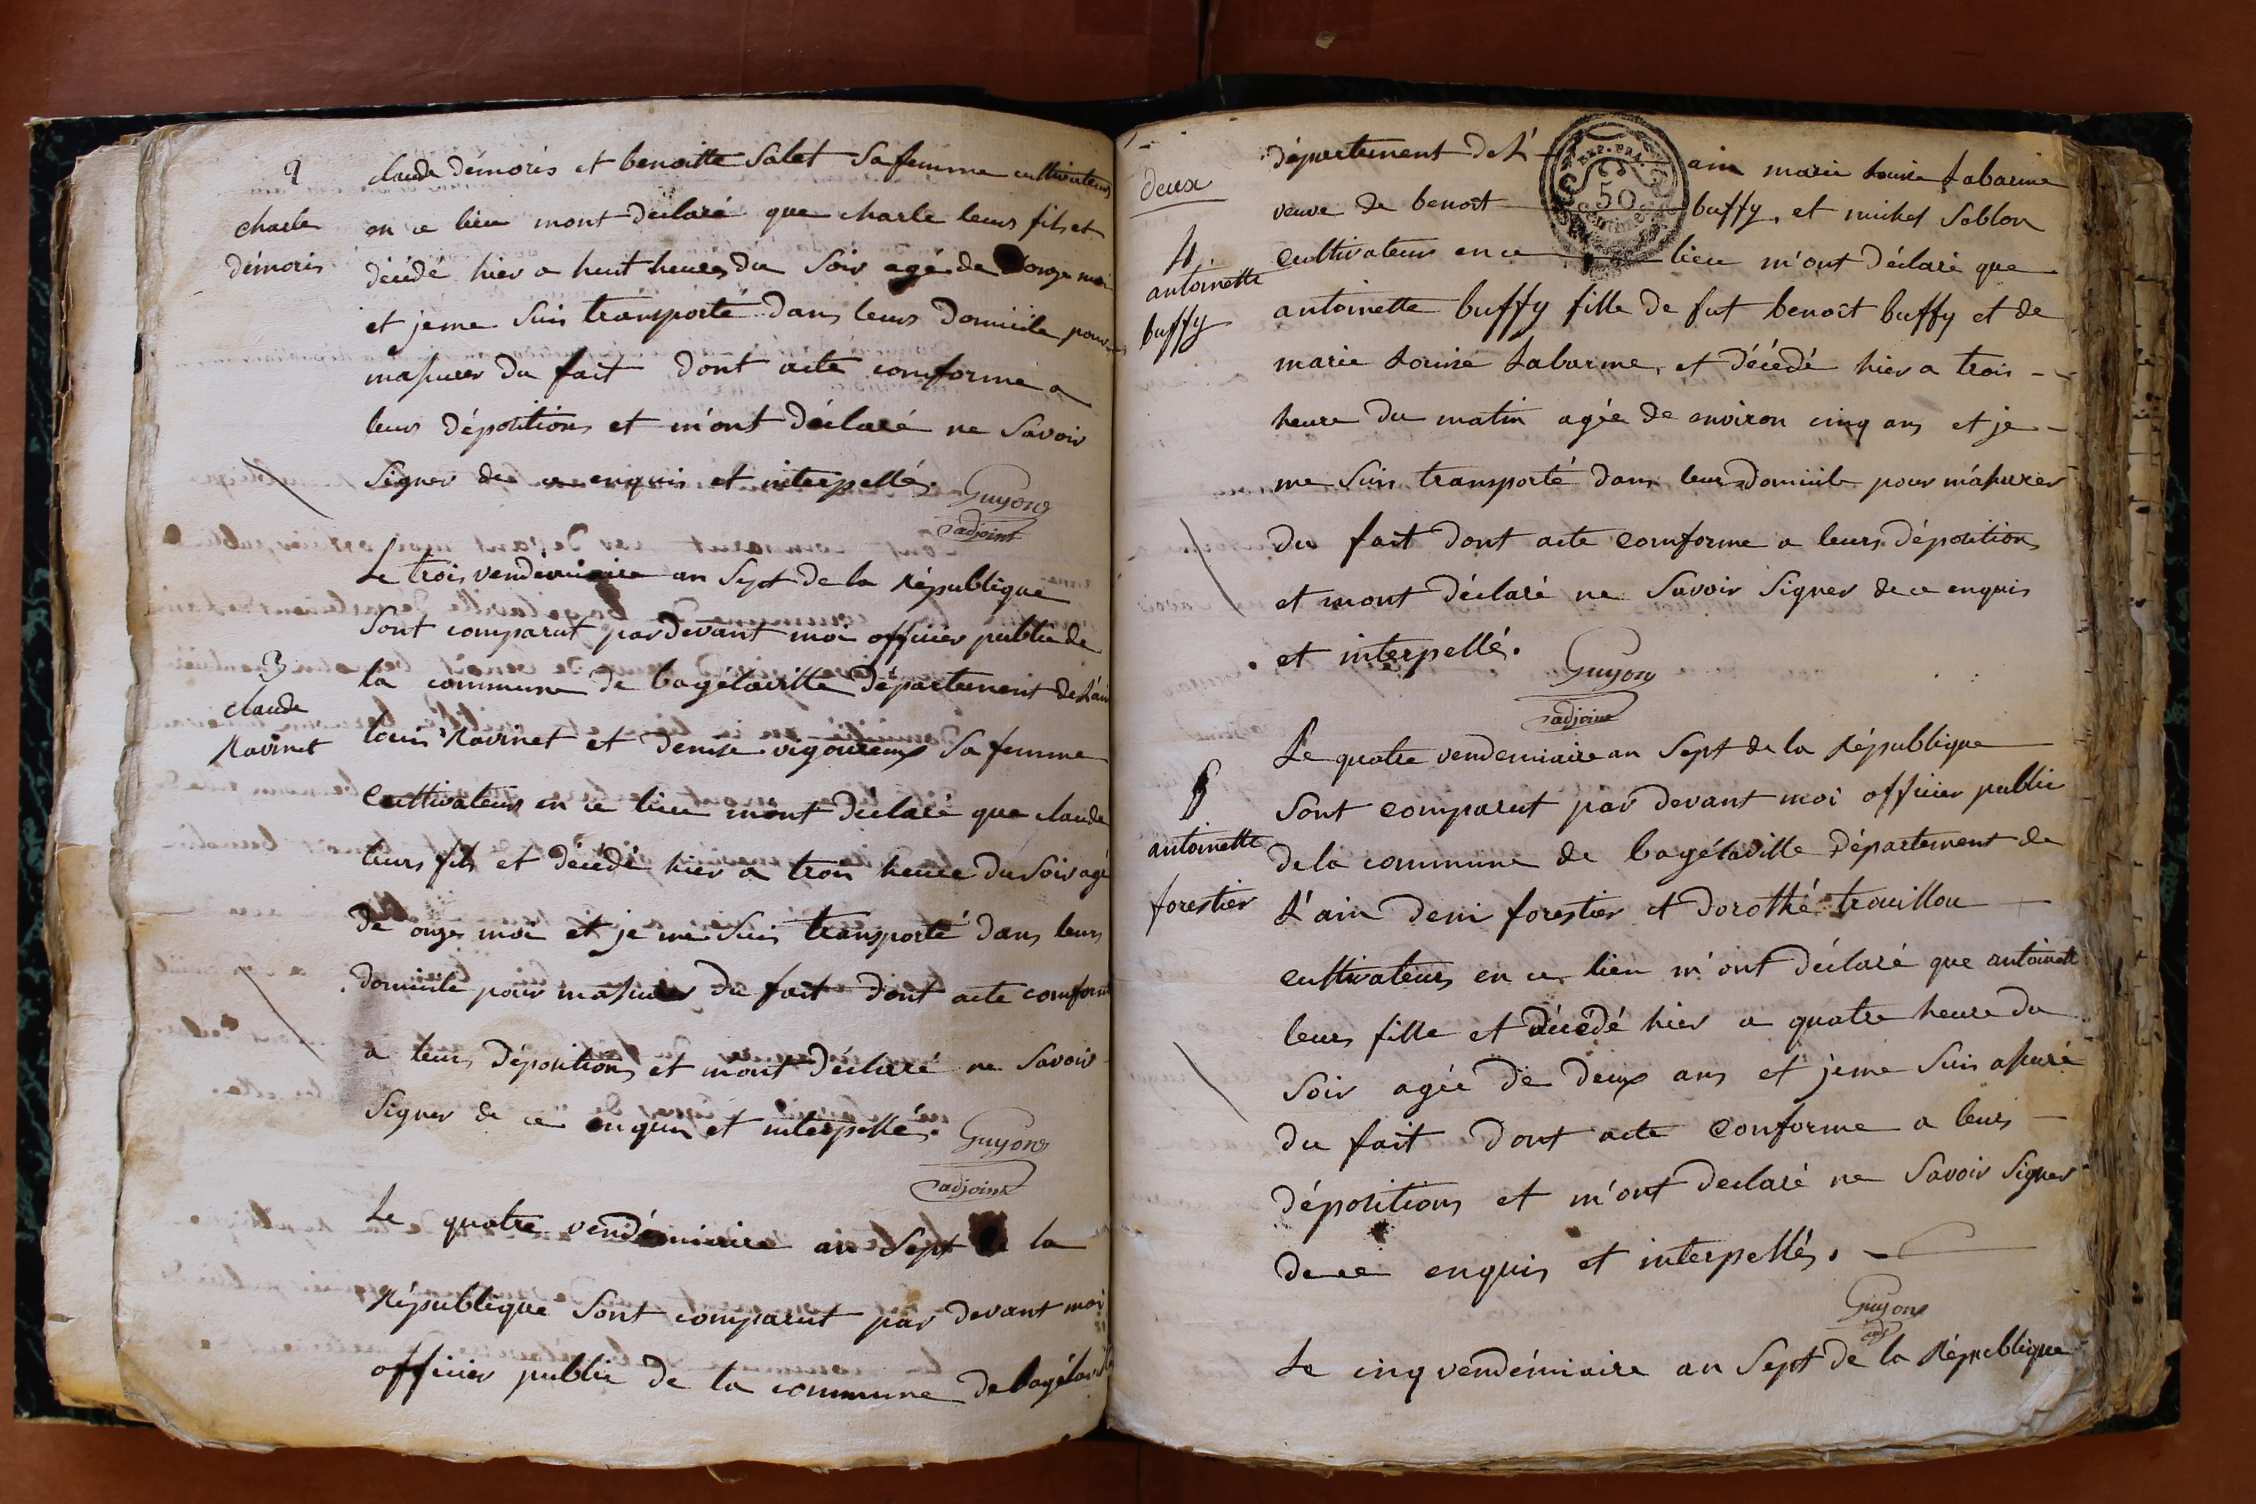 2
charle
démoris
claude démoris et benoitte Salet Sa femme cultivateurs
en ce lieu mont declaré que charle leurs fils et
décédé hier a huit heures du Soir agé de onze moi
et je me Suis transporté dans leurs Domicile pour
massurer du fait dont acte comforme a
leurs dépositions et m'ont déclaré ne Savoir
Signer de ce enquis et interpellés.
Guyon
adjoint
3
claude
Ravinet
Le trois vendemiaire an Sept de la République
Sont comparut par devant moi officier public de
la commune de bagélaville département de L'ain
louis Ravinet et denise vigoureux Sa femme
Cultivateurs en ce lieu m'ont déclaré que claude
leurs fils et décédé hier a trois heure du Soir agé
de onze moi et je me Suis transporté dans leurs
domicile pour massurer du fait dont acte comforme
a leurs dépositions et m'ont déclaré ne Savoir
Signer de ce enquis et interpellés.
Guyon
adjoint
Le quatre vendémiaire an Sept de la
République Sont comparut par devant moi
officier public de la commune de bagélaville
deux
EXP.
50
4
antoinette
buffy
département de L'ain marie Louise Labarme
veuve de benoît buffy, et michel Sablon
Cultivateurs en ce lieu m'ont déclaré que
antoinette buffy fille de fut benoît buffy et de
marie Louise Labarme, et décédé hier a trois
heure du matin agée de environ cinq ans et je
me Suis transporté dans leurs domicile pour m'assurer
du fait dont acte comforme a leurs dépositions
et mont déclaré ne Savoir Signer de ce enquis
et interpellé.
Guyon
adjoint
5
antoinette
forestier
Le quatre vendemiaire an Sept de la République
Sont comparut par devant moi officier public
de la commune de bagélaville département de
L'ain deni forestier et dorothé trouillou
cultivateurs en ce lieu m'ont déclaré que antoinette
leurs fille et décédé hier a quatre heure du
Soir agée de deux ans et je me Suis assuré
du fait dont acte conforme a leurs
dépositions et m'ont declaré ne Savoir Signer
de ce enquis et interpellés.
Guyon
adj
Le cinq vendémiaire an Sept de la République